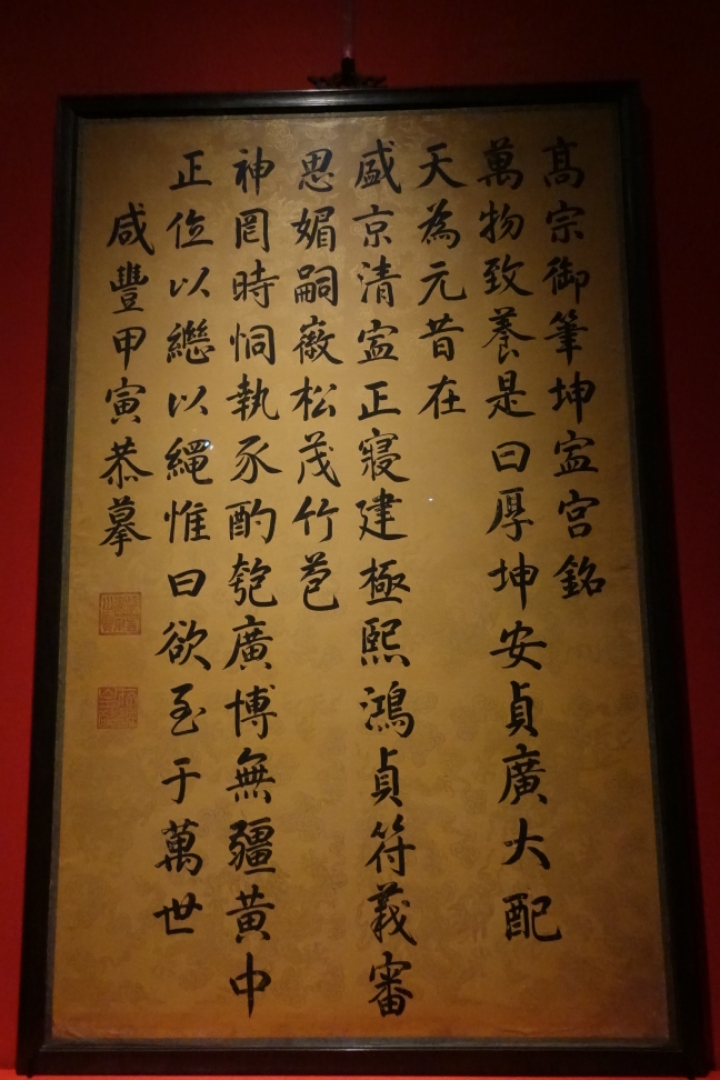 髙宗御筆坤寍宮銘
萬物致養是曰厚坤安貞廣大配
天為元昔在
盛京清寍正寢建極熙鴻貞符義審
思媚嗣徽松茂竹苞
神罔時恫執豕酌匏廣博無疆黃中
正位以繼以繩惟曰欲至于萬世
咸豐甲寅恭摹